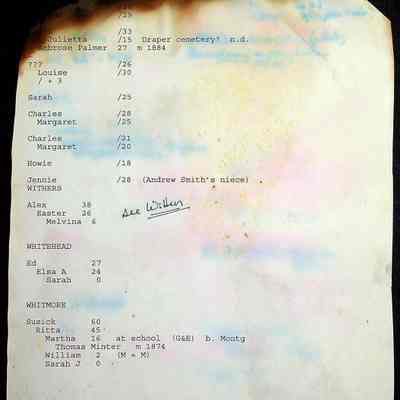 /29
/33
Julietta /15 Draper cemetery? n.d.
Ambrose Palmer 27 m 1884
??? /26
Louise /30
/ + 3
Sarah /25
Charles /28
Margaret /25
Charles /31
Margaret /20
Howie /18
Jennie /28 (Andrew Smith's niece)
WITHERS
Alex 38
Easter 26
Melvina 6
See Withers
WHITEHEAD
Ed 27
Elsa A 24
Sarah 0
WHITMORE
Susick 60
Ritta 45
Martha 16 at school (G&E) b. Montg
Thomas Minter m 1874
William 2 (M + M)
Sarah J 0